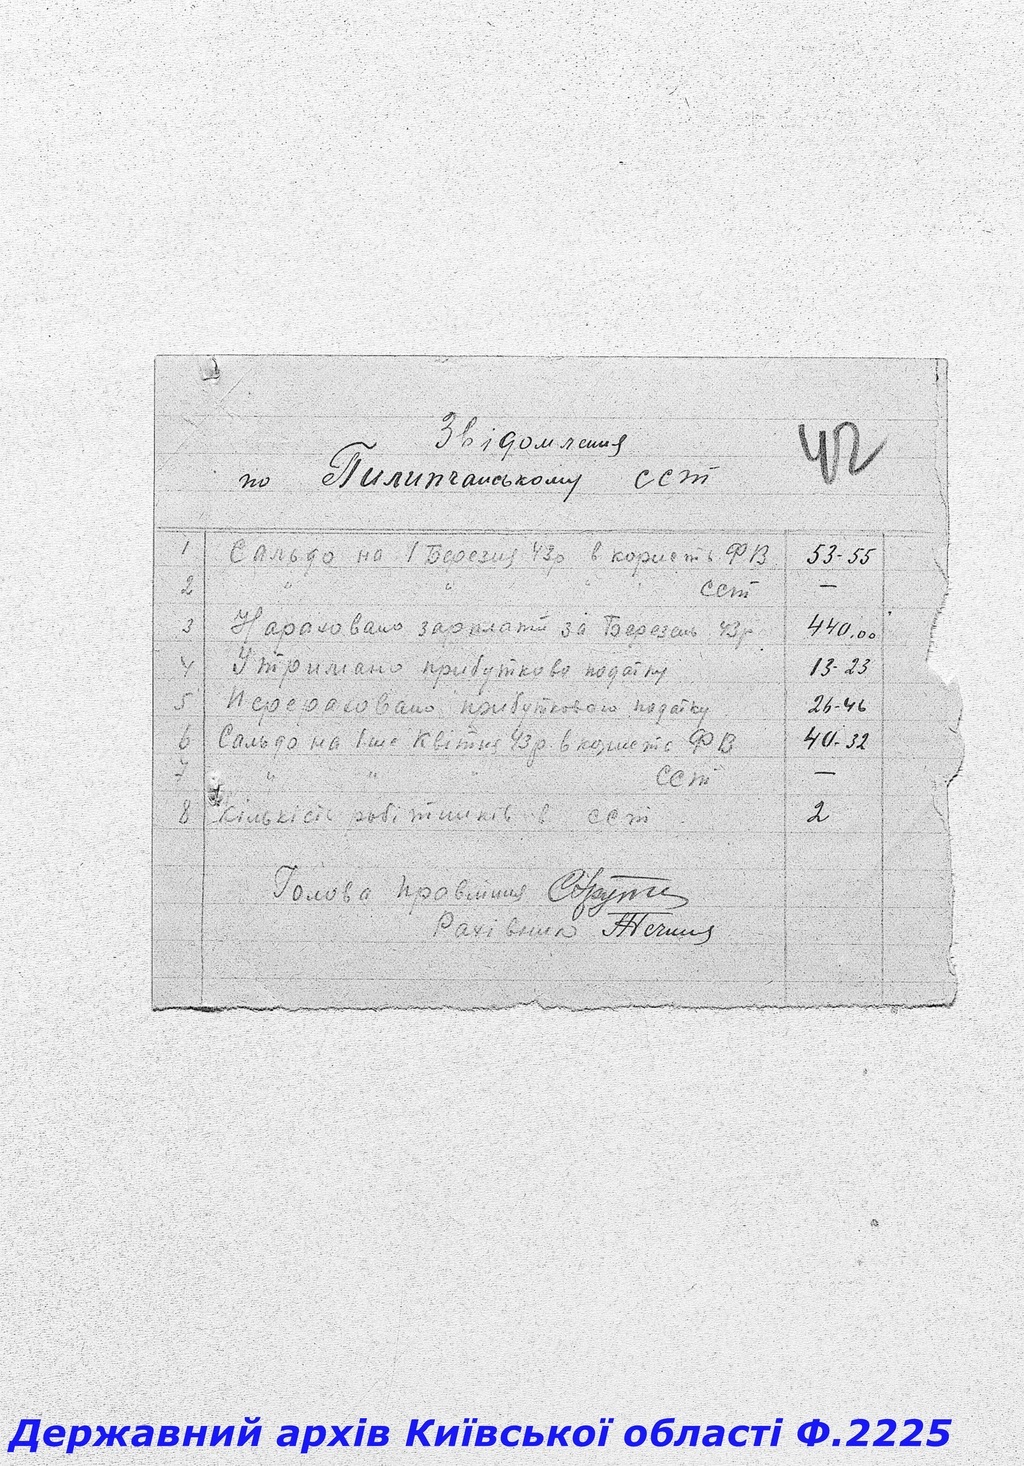 Звідомлення
42
по Пилипчанському ССТ
1 Сальдо на 1 Березня 43р в користь ФВ 53-55
2 " " " ССТ —
3 Нараховано зарплати за Березень 43р. 440.00
4 Утримано прибутково податку 13-23
5 Перераховано прибуткового податку 26-46
6 Сальдо на 1ше Квітня 43р. в користь ФВ 40-32
7 " " " ССТ —
8 Кількість робітників в ССТ 2
Голова Правління
Рахівник
Державний архів Київської області Ф.2225